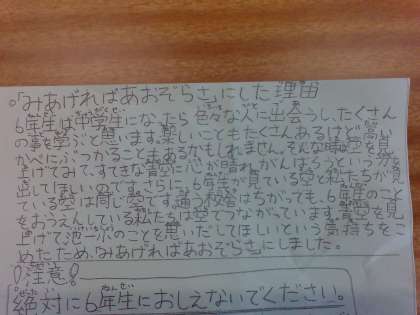 ○「みあげればあおぞらさ」にした理由
6年生は中学生になったら色々な人に出会うし、たくさん
の事を学ぶと思います。楽しいこともたくさんあるけど高い
かべにぶつかることもあるかもしれません。そんな時空を見
上げてみて、すてきな青空に心が晴れ、がんばろうという気を
出してほしいのです。さらに、6年生が見ている空と私たちが見
ている空は同じ空です。通う校舎はちがっても、6年生のこと
をおうえんしている私たちは空でつながっています。青空を見
上げて池一小のことを思いだしてほしいという気持ちをこ
めたため、「みあげればあおぞらさ」にしました。
！注意！
絶対に6年生におしえないでください。